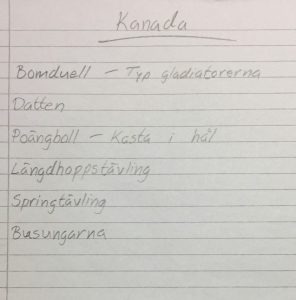 Kanada
Bomduell - Typ gladiatorerna
Datten
Poängboll - Kasta i hål
Längdhoppstävling
Springtävling
Busungarna